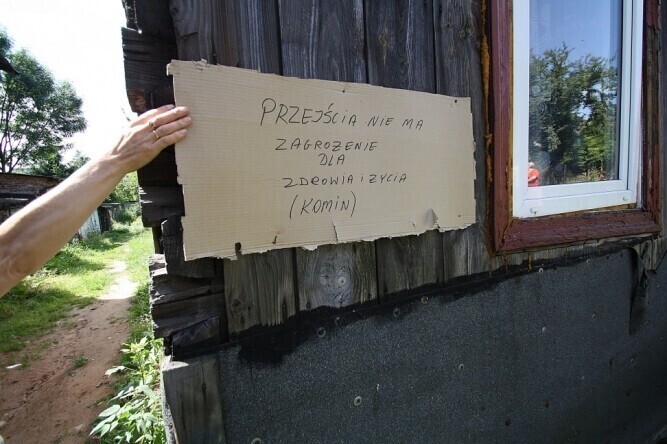 PRZEJŚCIA NIE MA
ZAGROŻENIE
DLA
ZDROWIA I ŻYCIA
(KOMIN)